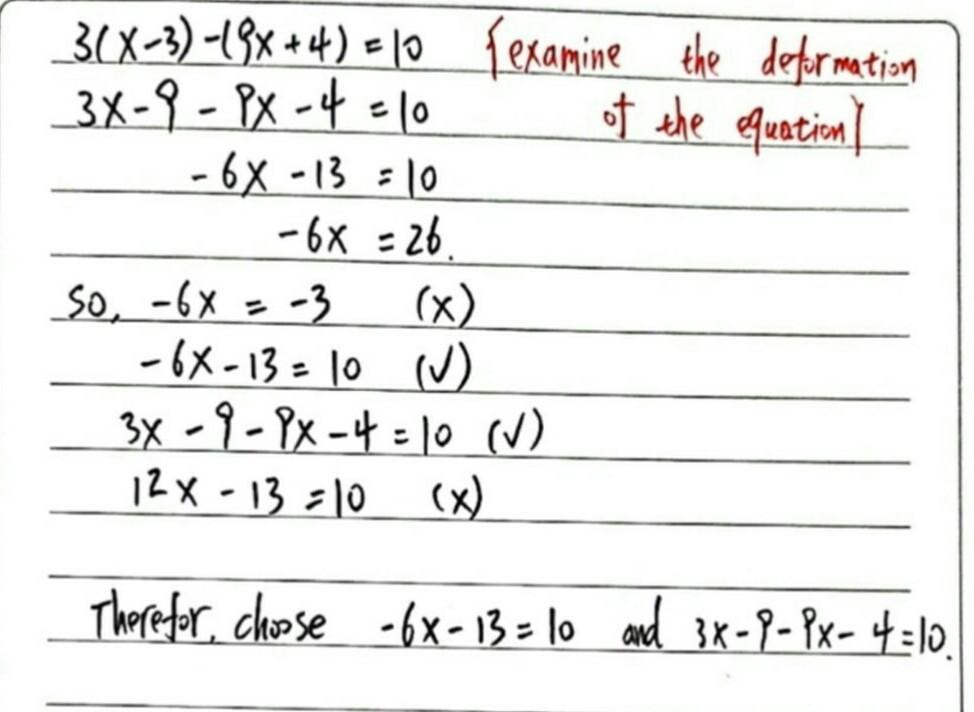 3(x-3)-(9x+4)=10 {examine the deformation
3x-9-9x-4=10 of the equation}
-6x-13=10
-6x=26.
so, -6x=-3 (x)
-6x-13=10 (√)
3x-9-9x-4=10 (√)
12x-13=10 (x)
Therefor, choose -6x-13=10 and 3x-9-9x-4=10.